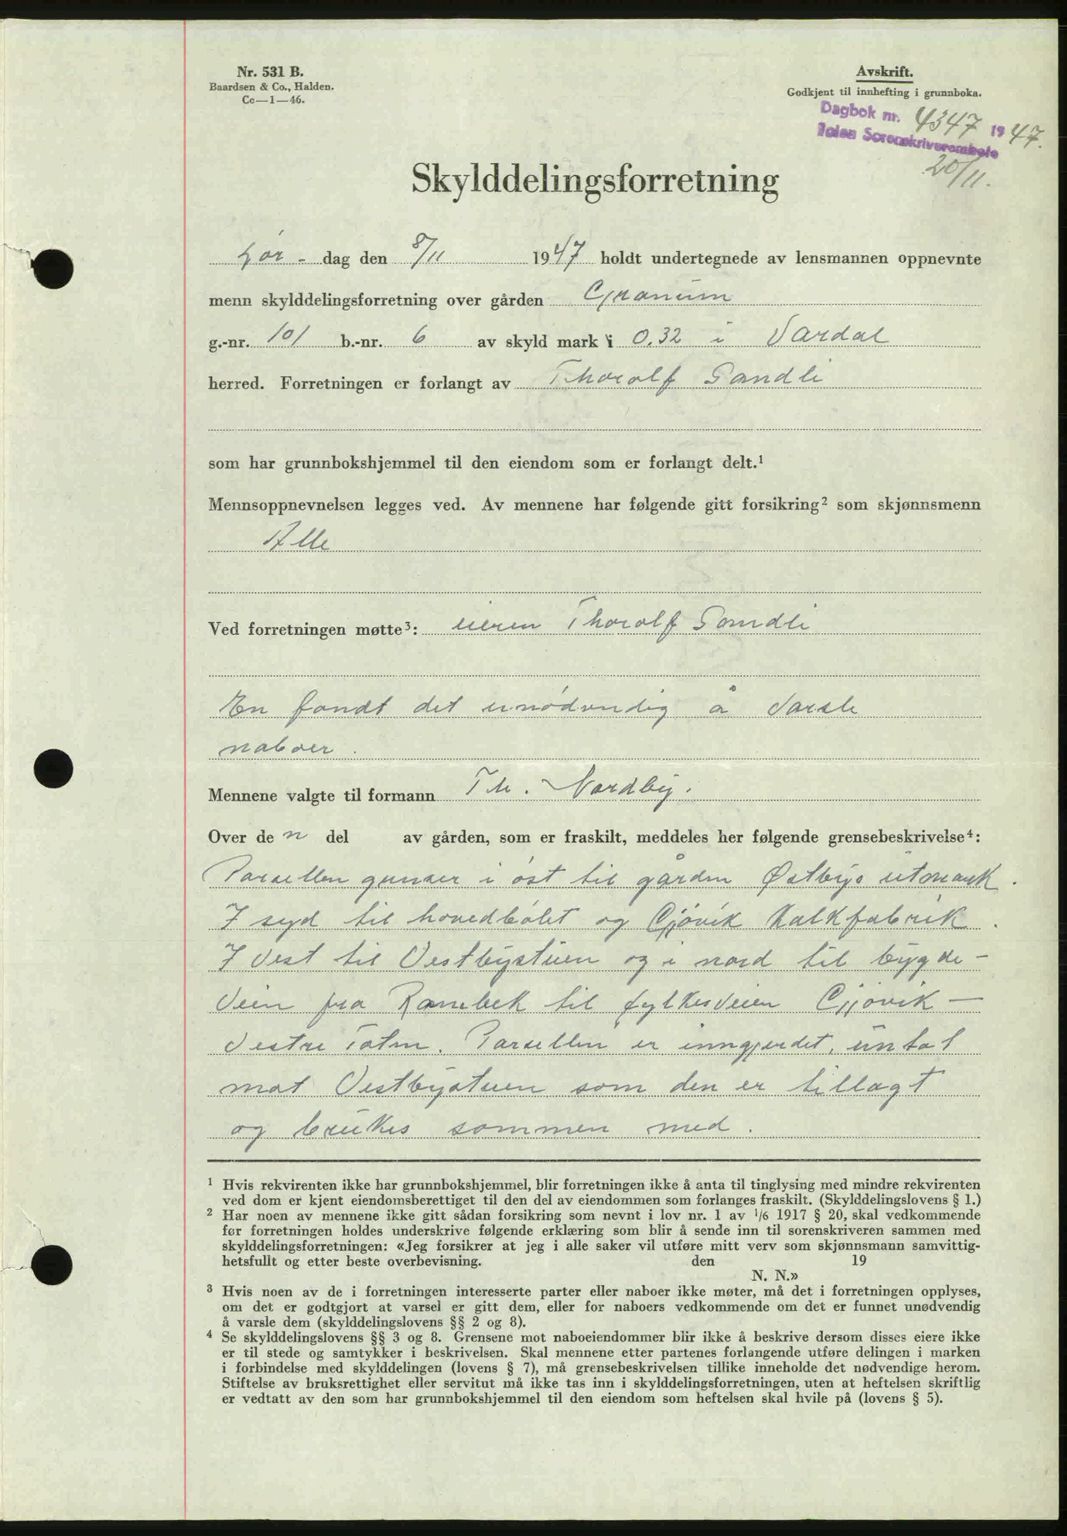 Nr. 531 B.
Baardsen & Co., Halden.
Cc—1—46.
Avskrift.
Godkjent til innhefting i grunnboka.
Dagbok nr. 4347 1947.
Toten Sorenskriverembete
20/11.
Skylddelingsforretning
Lør- dag den 8/11 1947 holdt undertegnede av lensmannen oppnevnte
menn skylddelingsforretning over gården Granum
g.-nr. 101 b.-nr. 6 av skyld mark i 0.32 i Vardal
herred. Forretningen er forlangt av Thorolf Sandli
som har grunnbokshjemmel til den eiendom som er forlangt delt.¹
Mennsoppnevnelsen legges ved. Av mennene har følgende gitt forsikring² som skjønnsmenn
Alle
Ved forretningen møtte³: eieren Thorolf Sandli
En fandt det unødvendig å varsle
naboer.
Mennene valgte til formann Th. Nordby.
Over de n del av gården, som er fraskilt, meddeles her følgende grensebeskrivelse⁴:
Parsellen grenser i øst til gården Østbys utmark.
I syd til hovedbølet og Gjøvik Kalkfabrik.
I vest til Vestbystuen og i nord til bygde-
veien fra til fylkesveien Gjøvik —
Vestre Toten. Parsellen er inngjerdet, untat
mot Vestbystuen som den er tillagt
og brukes sammen med.
¹ Hvis rekvirenten ikke har grunnbokshjemmel, blir forretningen ikke å anta til tinglysing med mindre rekvirenten
ved dom er kjent eiendomsberettiget til den del av eiendommen som forlanges fraskilt. (Skylddelingslovens § 1.)
² Har noen av mennene ikke gitt sådan forsikring som nevnt i lov nr. 1 av 1/6 1917 § 20, skal vedkommende
før forretningen holdes underskrive følgende erklæring som blir å sende inn til sorenskriveren sammen med
skylddelingsforretningen: «Jeg forsikrer at jeg i alle saker vil utføre mitt verv som skjønnsmann samvittig-
hetsfullt og etter beste overbevisning. den 19
N. N.»
³ Hvis noen av de i forretningen interesserte parter eller naboer ikke møter, må det i forretningen opplyses,
om det er godtgjort at varsel er gitt dem, eller for naboers vedkommende om det er funnet unødvendig
å varsle dem (skylddelingslovens §§ 2 og 8).
⁴ Se skylddelingslovens §§ 3 og 8. Grensene mot naboeiendommer blir ikke å beskrive dersom disses eiere ikke
er til stede og samtykker i beskrivelsen. Skal mennene etter partenes forlangende utføre delingen i marken
i forbindelse med skylddelingen (lovens § 7), må grensebeskrivelsen tillike inneholde det nødvendige herom.
Stiftelse av bruksrettighet eller servitut må ikke tas inn i skylddelingsforretningen, uten at heftelsen skriftlig
er vedtatt av den som har grunnbokshjemmel til den eiendom som heftelsen skal hvile på (lovens § 5).